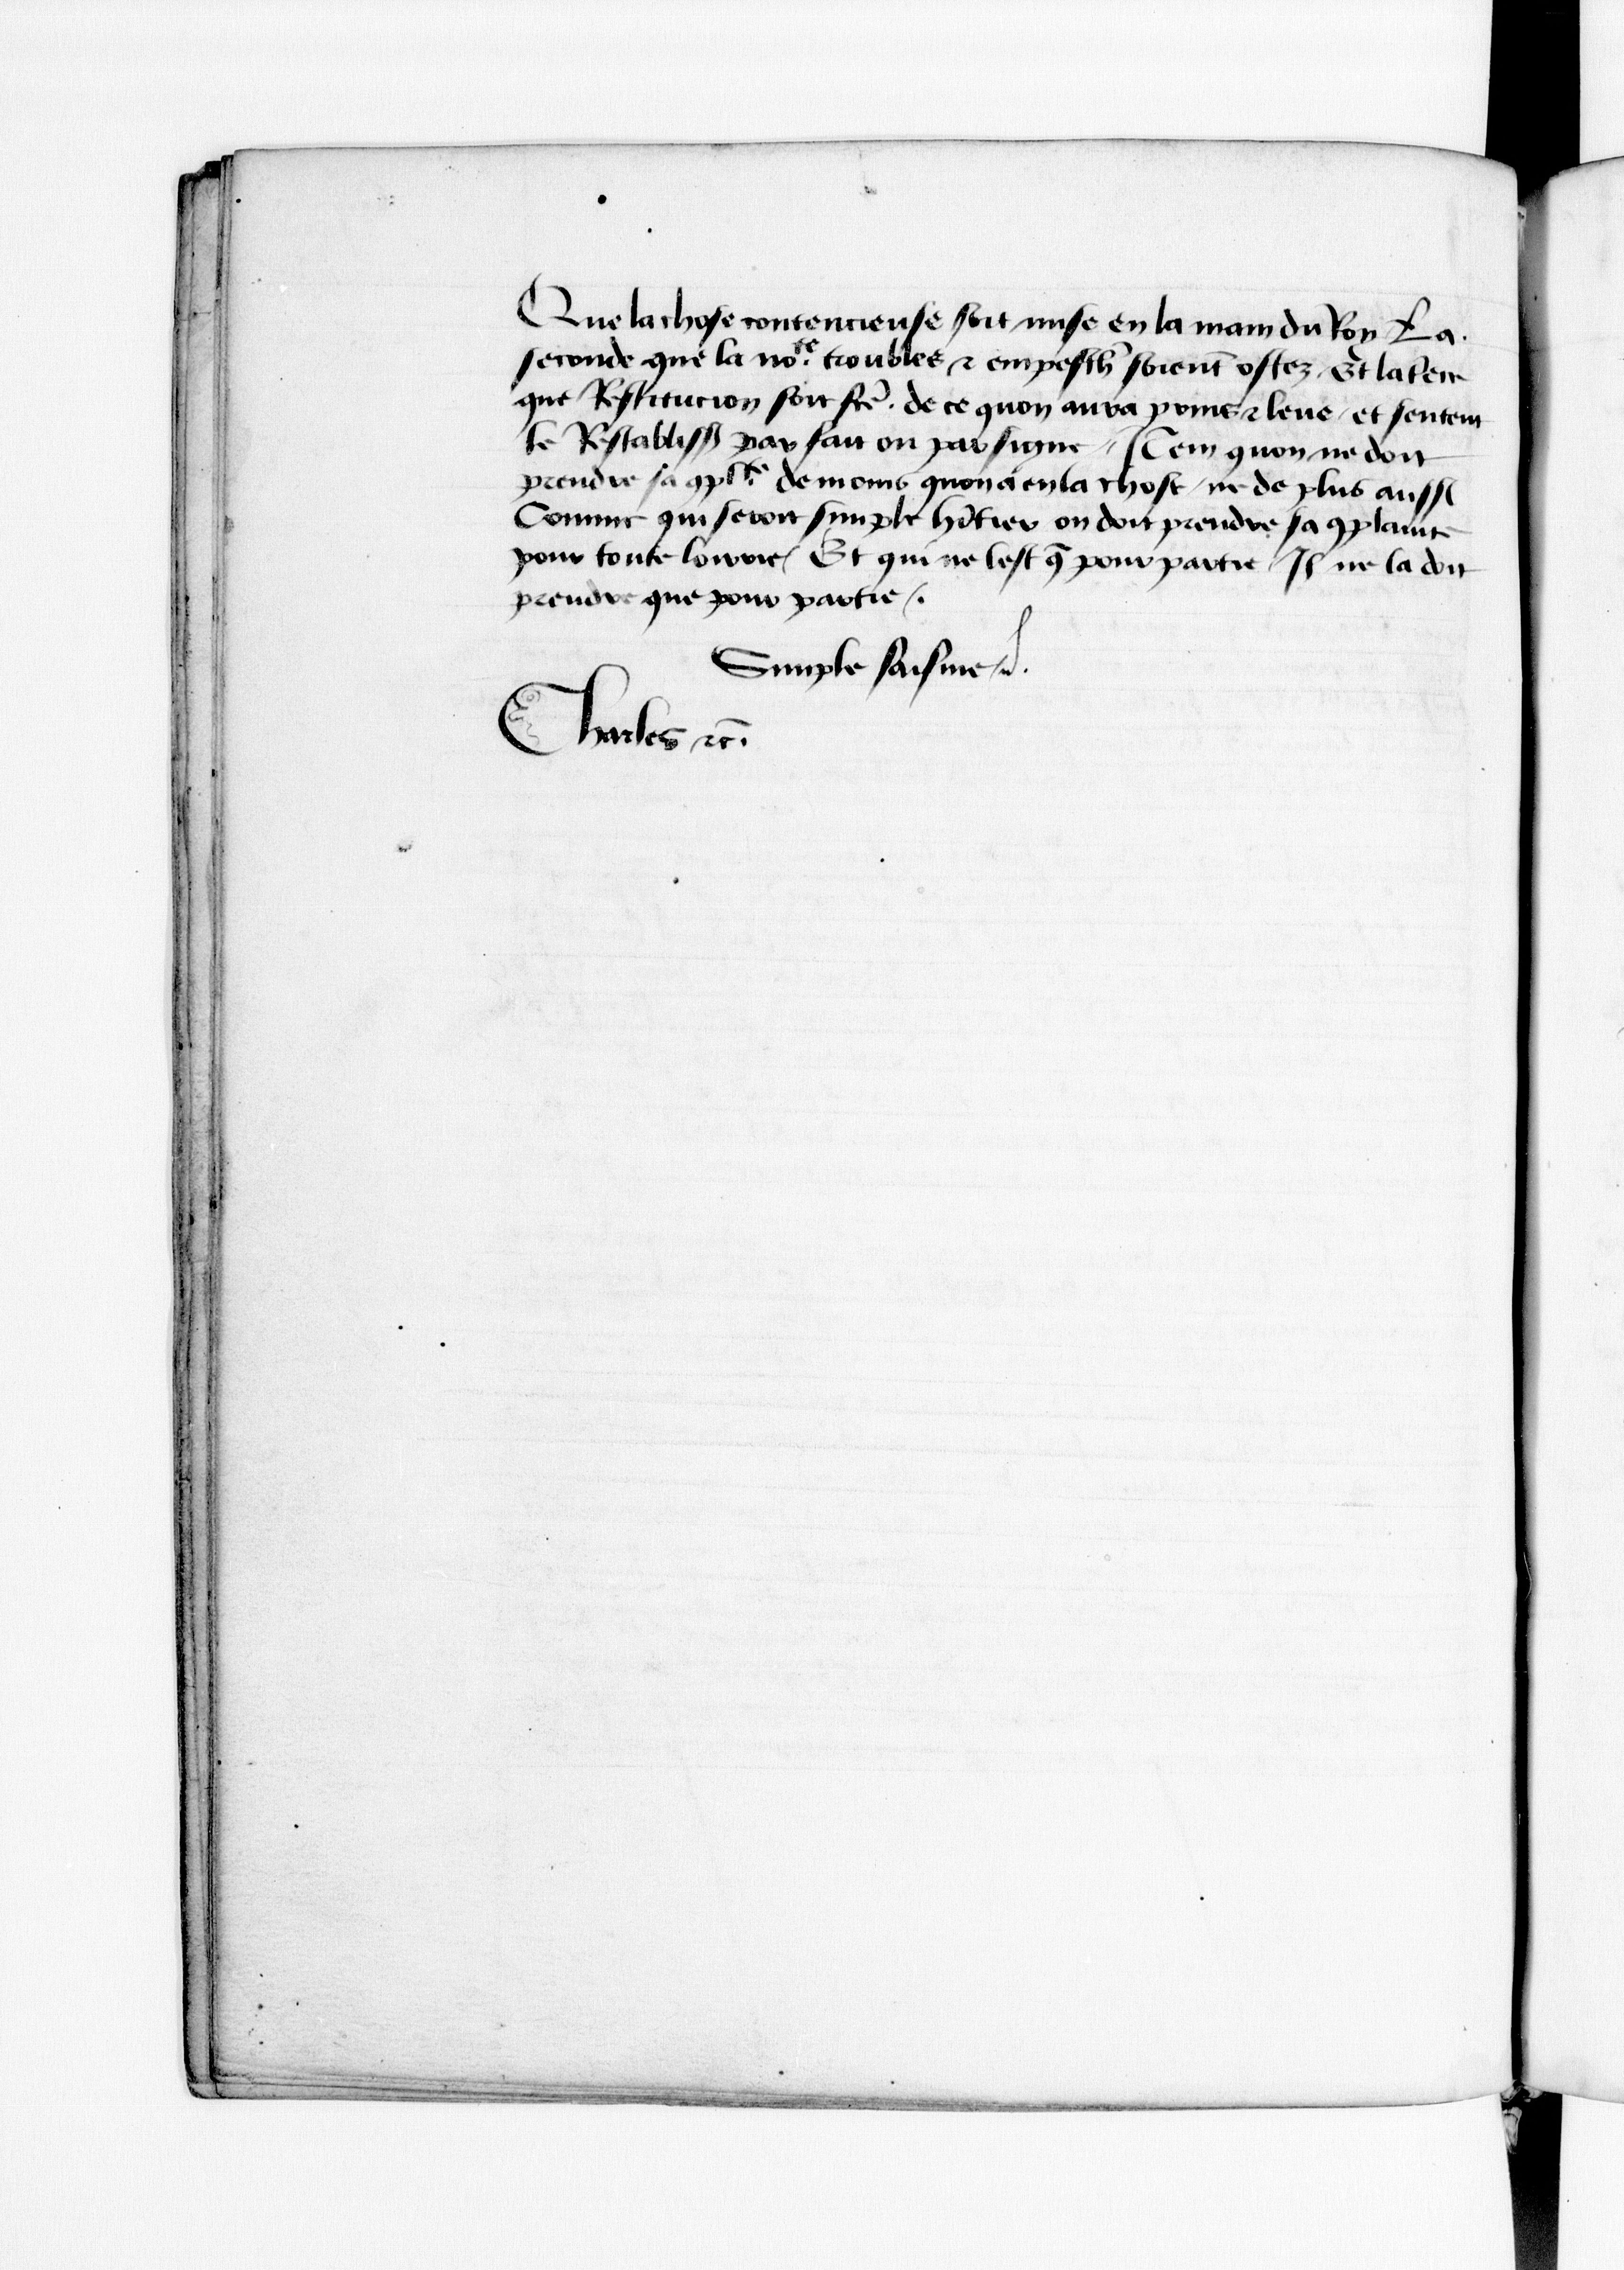 Que la chose contencieuse soit mise en la main du Roy La.
seconde que la no.te troubles ⁊ empesch̃ soient̃ ostez / Et la t̃erc
que Restitucion soit fc̃e . de ce quon aura prins ⁊ leve / et sentent
le Restabliss par fait ou par signe / Item quon ne doit
prendre sa ꝯpl.te de moins quon a en la chose / ne de plus aussi
Comme qui seroit simple hr̃itier on doit prendre sa ꝯplainte
pour toute loirrie / Et qui ne lest q̃ pour partie / Il ne la doit
prendre que pour partie /.
Simple saisine
Charles ⁊c̃.